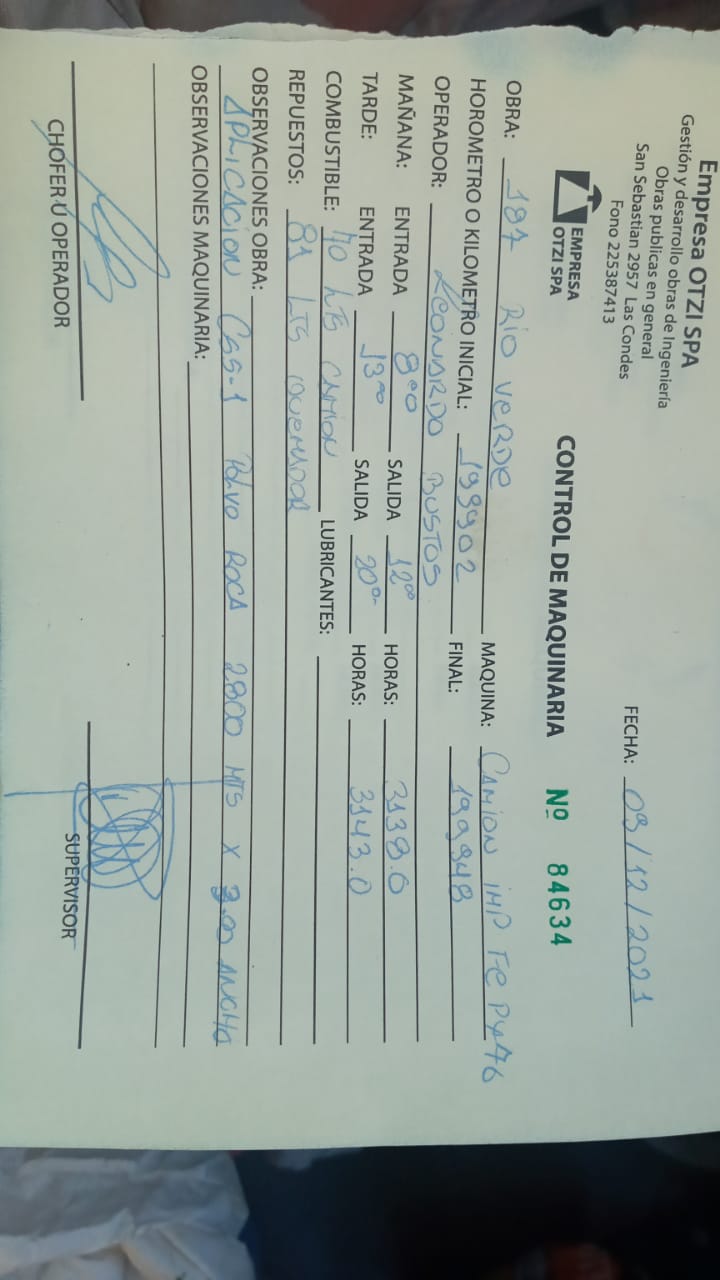 Empresa OTZI SPA
Gestión y desarrollo obras de Ingeniería
Obras publicas en general
San Sebastian 2957 Las Condes
Fono 225387413
EMPRESA
OTZI SPA
FECHA: 09/12/2021
CONTROL DE MAQUINARIA Nº 84634
OBRA: 187 RIO VERDE MAQUINA: CAMION IMP FE PY76
HOROMETRO O KILOMETRO INICIAL: 199902 FINAL: 199948
OPERADOR: LEONARDO BUSTOS
MAÑANA: ENTRADA 8:00 SALIDA 12:00 HORAS: 3138.0
TARDE: ENTRADA 13:00 SALIDA 20:00 HORAS: 3143.0
COMBUSTIBLE: 70 LTS CAMION LUBRICANTES:
REPUESTOS: 81 LTS QUEMADOR
OBSERVACIONES OBRA:
APLICACION CSS-1 POLVO ROCA 2800 MTS X 3.00 ANCHO
OBSERVACIONES MAQUINARIA:
CHOFER U OPERADOR SUPERVISOR